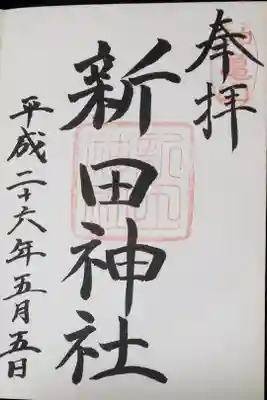 奉拝
新田神社
平成二十六年五月五日